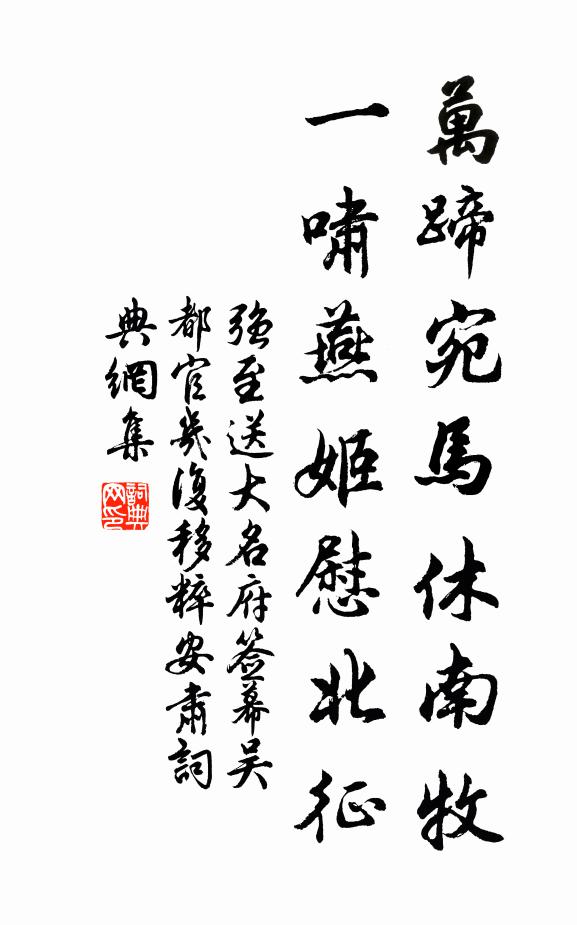 萬蹄宛馬休南牧
一嘯燕姬慰北征
強至送大名府签幕吴
都官幾復移粹安肅詞
典網集
詞典网印